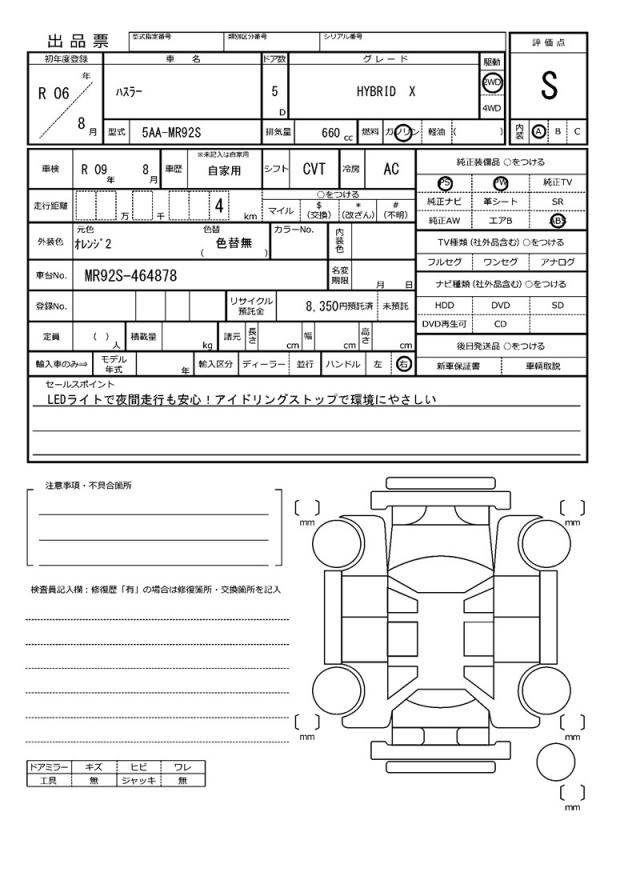 出品票 型式指定番号 類別区分番号 シリアル番号
評価点
初年度登録 車名 ドア数 グレード 駆動
R 06 年 ハスラー 5 D HYBRID X 2WD S
4WD
8 月 型式 5AA-MR92S 排気量 660 cc 燃料 ガソリン 軽油 ( ) 内装 A B C
車検 R 09 年 8 月 車歴 ※未記入は自家用 自家用 シフト CVT 冷房 AC 純正装備品 ○をつける
PS PW 純正TV
走行距離 万 千 4 km ○をつける 純正ナビ 革シート SR
マイル $ (交換) * (改ざん) # (不明) 純正AW エアB ABS
外装色 元色 オレンジ2 色替 色替無 ( ) カラーNo. 内装色 TV種類 (社外品含む) ○をつける
フルセグ ワンセグ アナログ
車台No. MR92S-464878 名変期限 月 日 ナビ種類 (社外品含む) ○をつける
登録No. リサイクル預託金 8,350円預託済 未預託 HDD DVD SD
DVD再生可 CD
定員 ( ) 人 積載量 kg 諸元 長さ cm 幅 cm 高さ cm 後日発送品 ○をつける
輸入車のみ⇒ モデル年式 年 輸入区分 ディーラー 並行 ハンドル 左 右 新車保証書 車輌取説
セールスポイント
LEDライトで夜間走行も安心！アイドリングストップで環境にやさしい
注意事項・不具合箇所
mm mm
検査員記入欄：修復歴「有」の場合は修復箇所・交換箇所を記入
mm mm
ドアミラー キズ ヒビ ワレ
工具 無 ジャッキ 無
mm